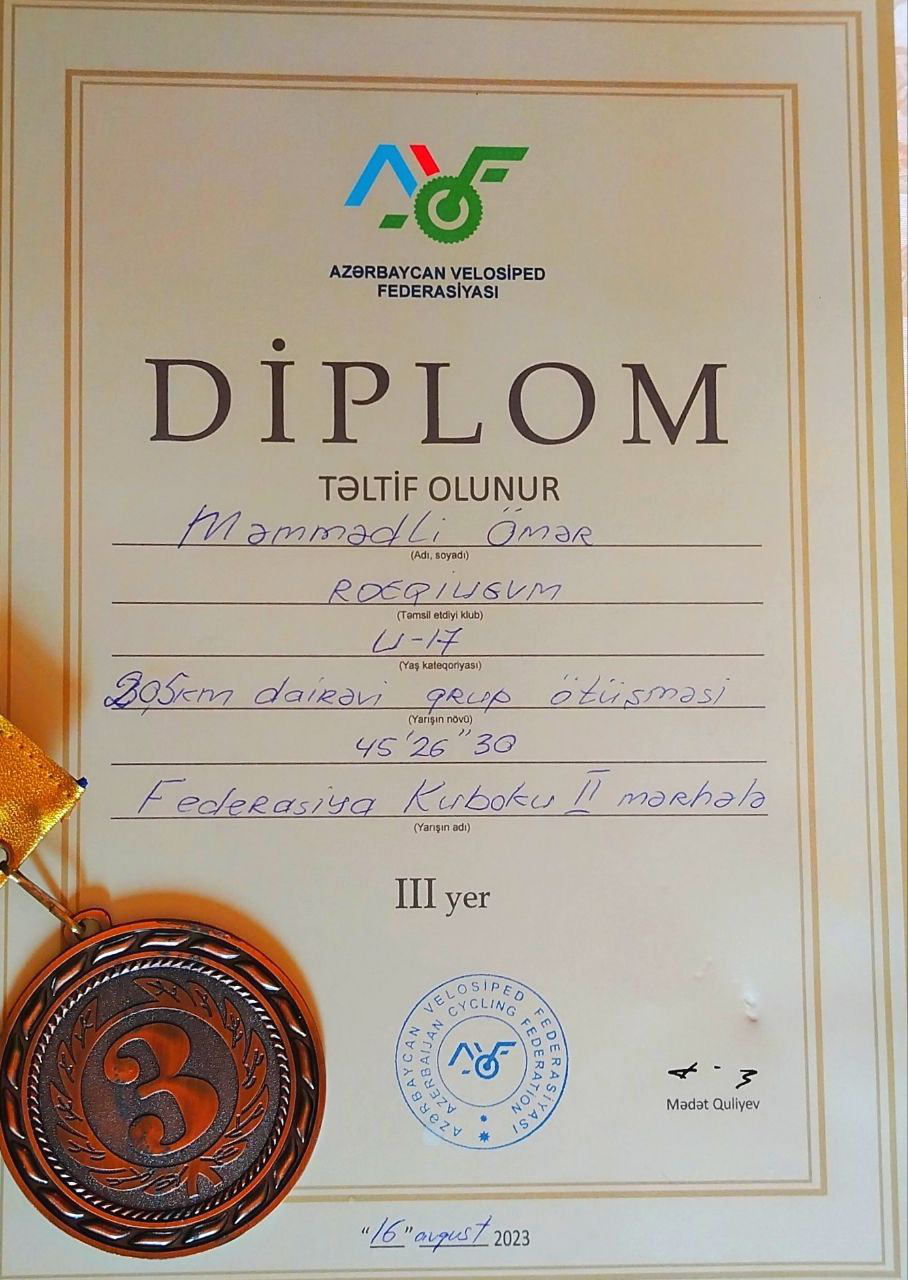 AZƏRBAYCAN VELOSİPED
FEDERASİYASI
DİPLOM
TƏLTİF OLUNUR
Məmmədli Ömər
(Adı, soyadı)
(Təmsil etdiyi klub)
U-17
(Yaş kateqoriyası)
dairəvi qrup ötüşməsi
(Yarışın növü)
45'26"30
Federasiya Kuboku II mərhələ
(Yarışın adı)
III yer
AZƏRBAYCAN VELOSİPED FEDERASİYASI
AZERBAIJAN CYCLING FEDERATION
Mədət Quliyev
"16" avqust 2023
3